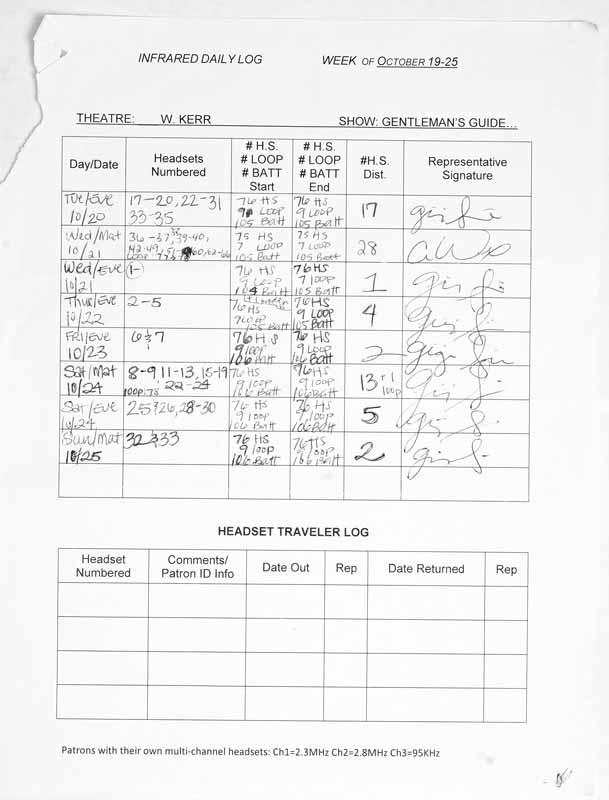 INFRARED DAILY LOG WEEK OF OCTOBER 19-25
THEATRE: W. KERR SHOW: GENTLEMAN'S GUIDE...
Day/Date
Headsets
Numbered
# H.S.
# LOOP
# BATT
Start
# H.S.
# LOOP
# BATT
End
#H.S.
Dist.
Representative
Signature
Tue/Eve
10/20
17-20, 22-31
33-35
76 HS
9 LOOP
105 Batt
76 HS
9 LOOP
105 Batt
17
Wed/Mat
10/21
75 HS
7 LOOP
105 Batt
75 HS
7 LOOP
105 Batt
28
Wed/Eve
10/21
1-
76 HS
9 LOOP
104 Batt
76 HS
9 LOOP
105 Batt
1
Thur/Eve
10/22
2-5
76 HS
7 LOOP
105 Batt
76 HS
9 LOOP
105 Batt
4
FRI/Eve
10/23
6 & 7
76 H.S
9 loop
106 Batt
76 HS
9 LOOP
106 Batt
2
Sat/Mat
10/24
8-9 11-13, 15-19
22-24
loop: 78
76 HS
9 loop
106 Batt
76 HS
9 loop
106 Batt
13 + 1
loop
Sat/Eve
10/24
25 & 26, 28-30
76 HS
9 loop
106 Batt
76 HS
9 loop
106 Batt
5
Sun/Mat
10/25
32 & 33
76 HS
9 loop
106 Batt
76 HS
9 loop
106 Batt
2
HEADSET TRAVELER LOG
Headset
Numbered
Comments/
Patron ID Info
Date Out
Rep
Date Returned
Rep
Patrons with their own multi-channel headsets: Ch1=2.3MHz Ch2=2.8MHz Ch3=95KHz